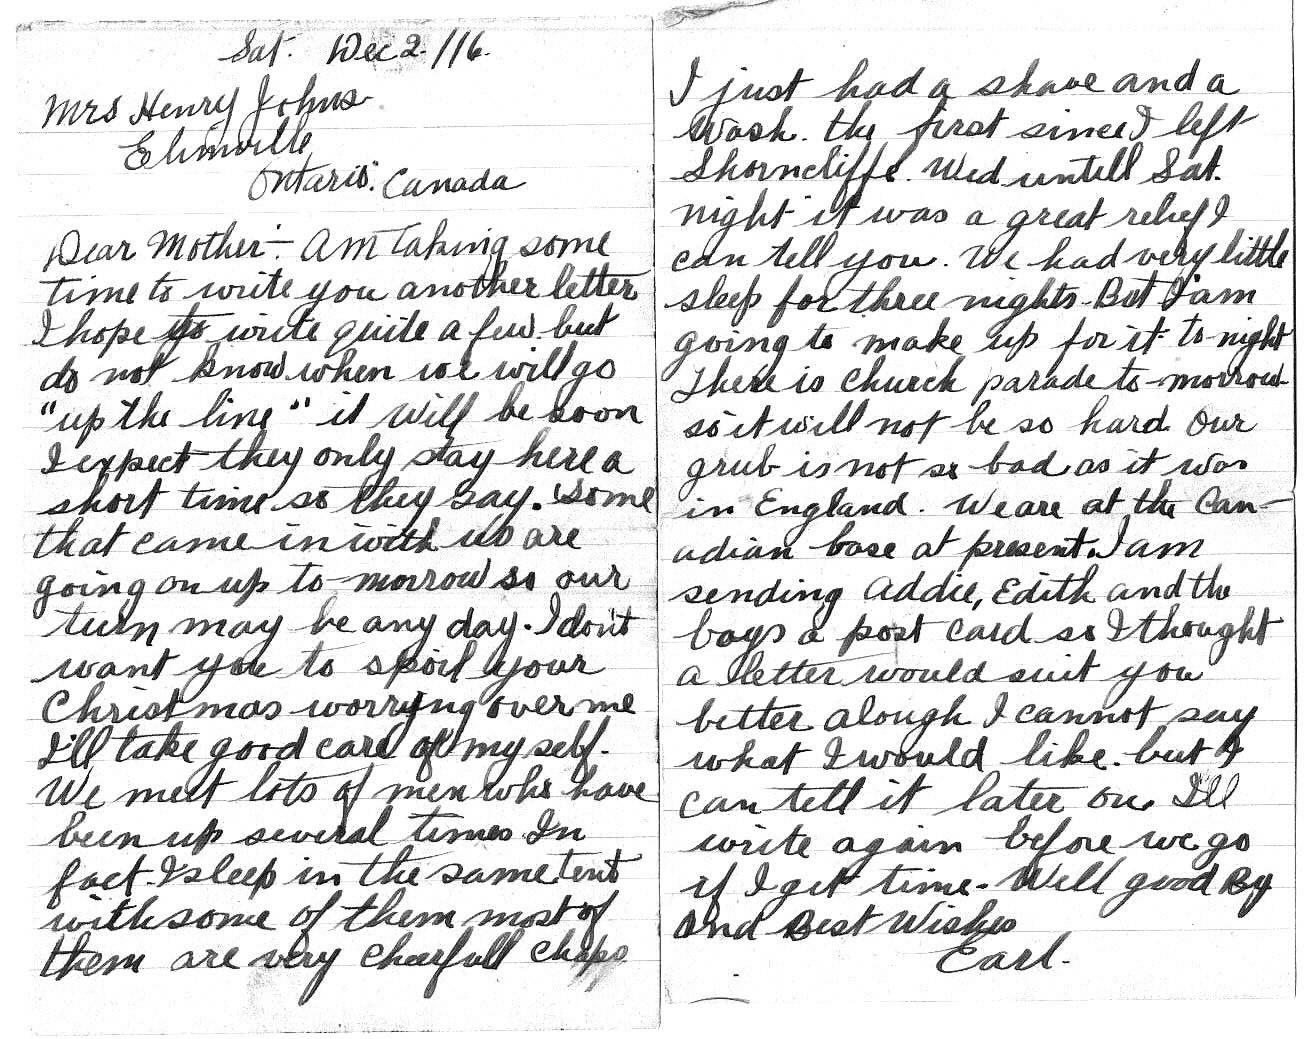 Sat. Dec 2./16.
Mrs Henry Johns
Elimville
Ontario. Canada
Dear Mother:- Am taking some
time to write you another letter
I hope to write quite a few. but
do not know when we will go
"up the line" it will be soon
I expect they only stay here a
short time so they say. Some
that came in with us are
going on up to-morrow so our
turn may be any day. I don't
want you to spoil your
Christmas worrying over me
I'll take good care of my self.
We meet lots of men who have
been up several times In
fact I sleep in the same tent
with some of them most of
them are very cheerfull chaps
I just had a shave and a
wash. the first since I left
Shorncliffe. Wed untill Sat.
night it was a great relief I
can tell you. We had very little
sleep for three nights. But I am
going to make up for it to-night
There is church parade to-morrow
so it will not be so hard. Our
grub is not so bad as it was
in England. We are at the Can-
adian base at present. I am
sending Addie, Edith and the
boys a post card so I thought
a letter would suit you
better alough I cannot say
what I would like. but I
can tell it later on. I'll
write again before we go
if I get time. Well good By
and Best Wishes
Earl.